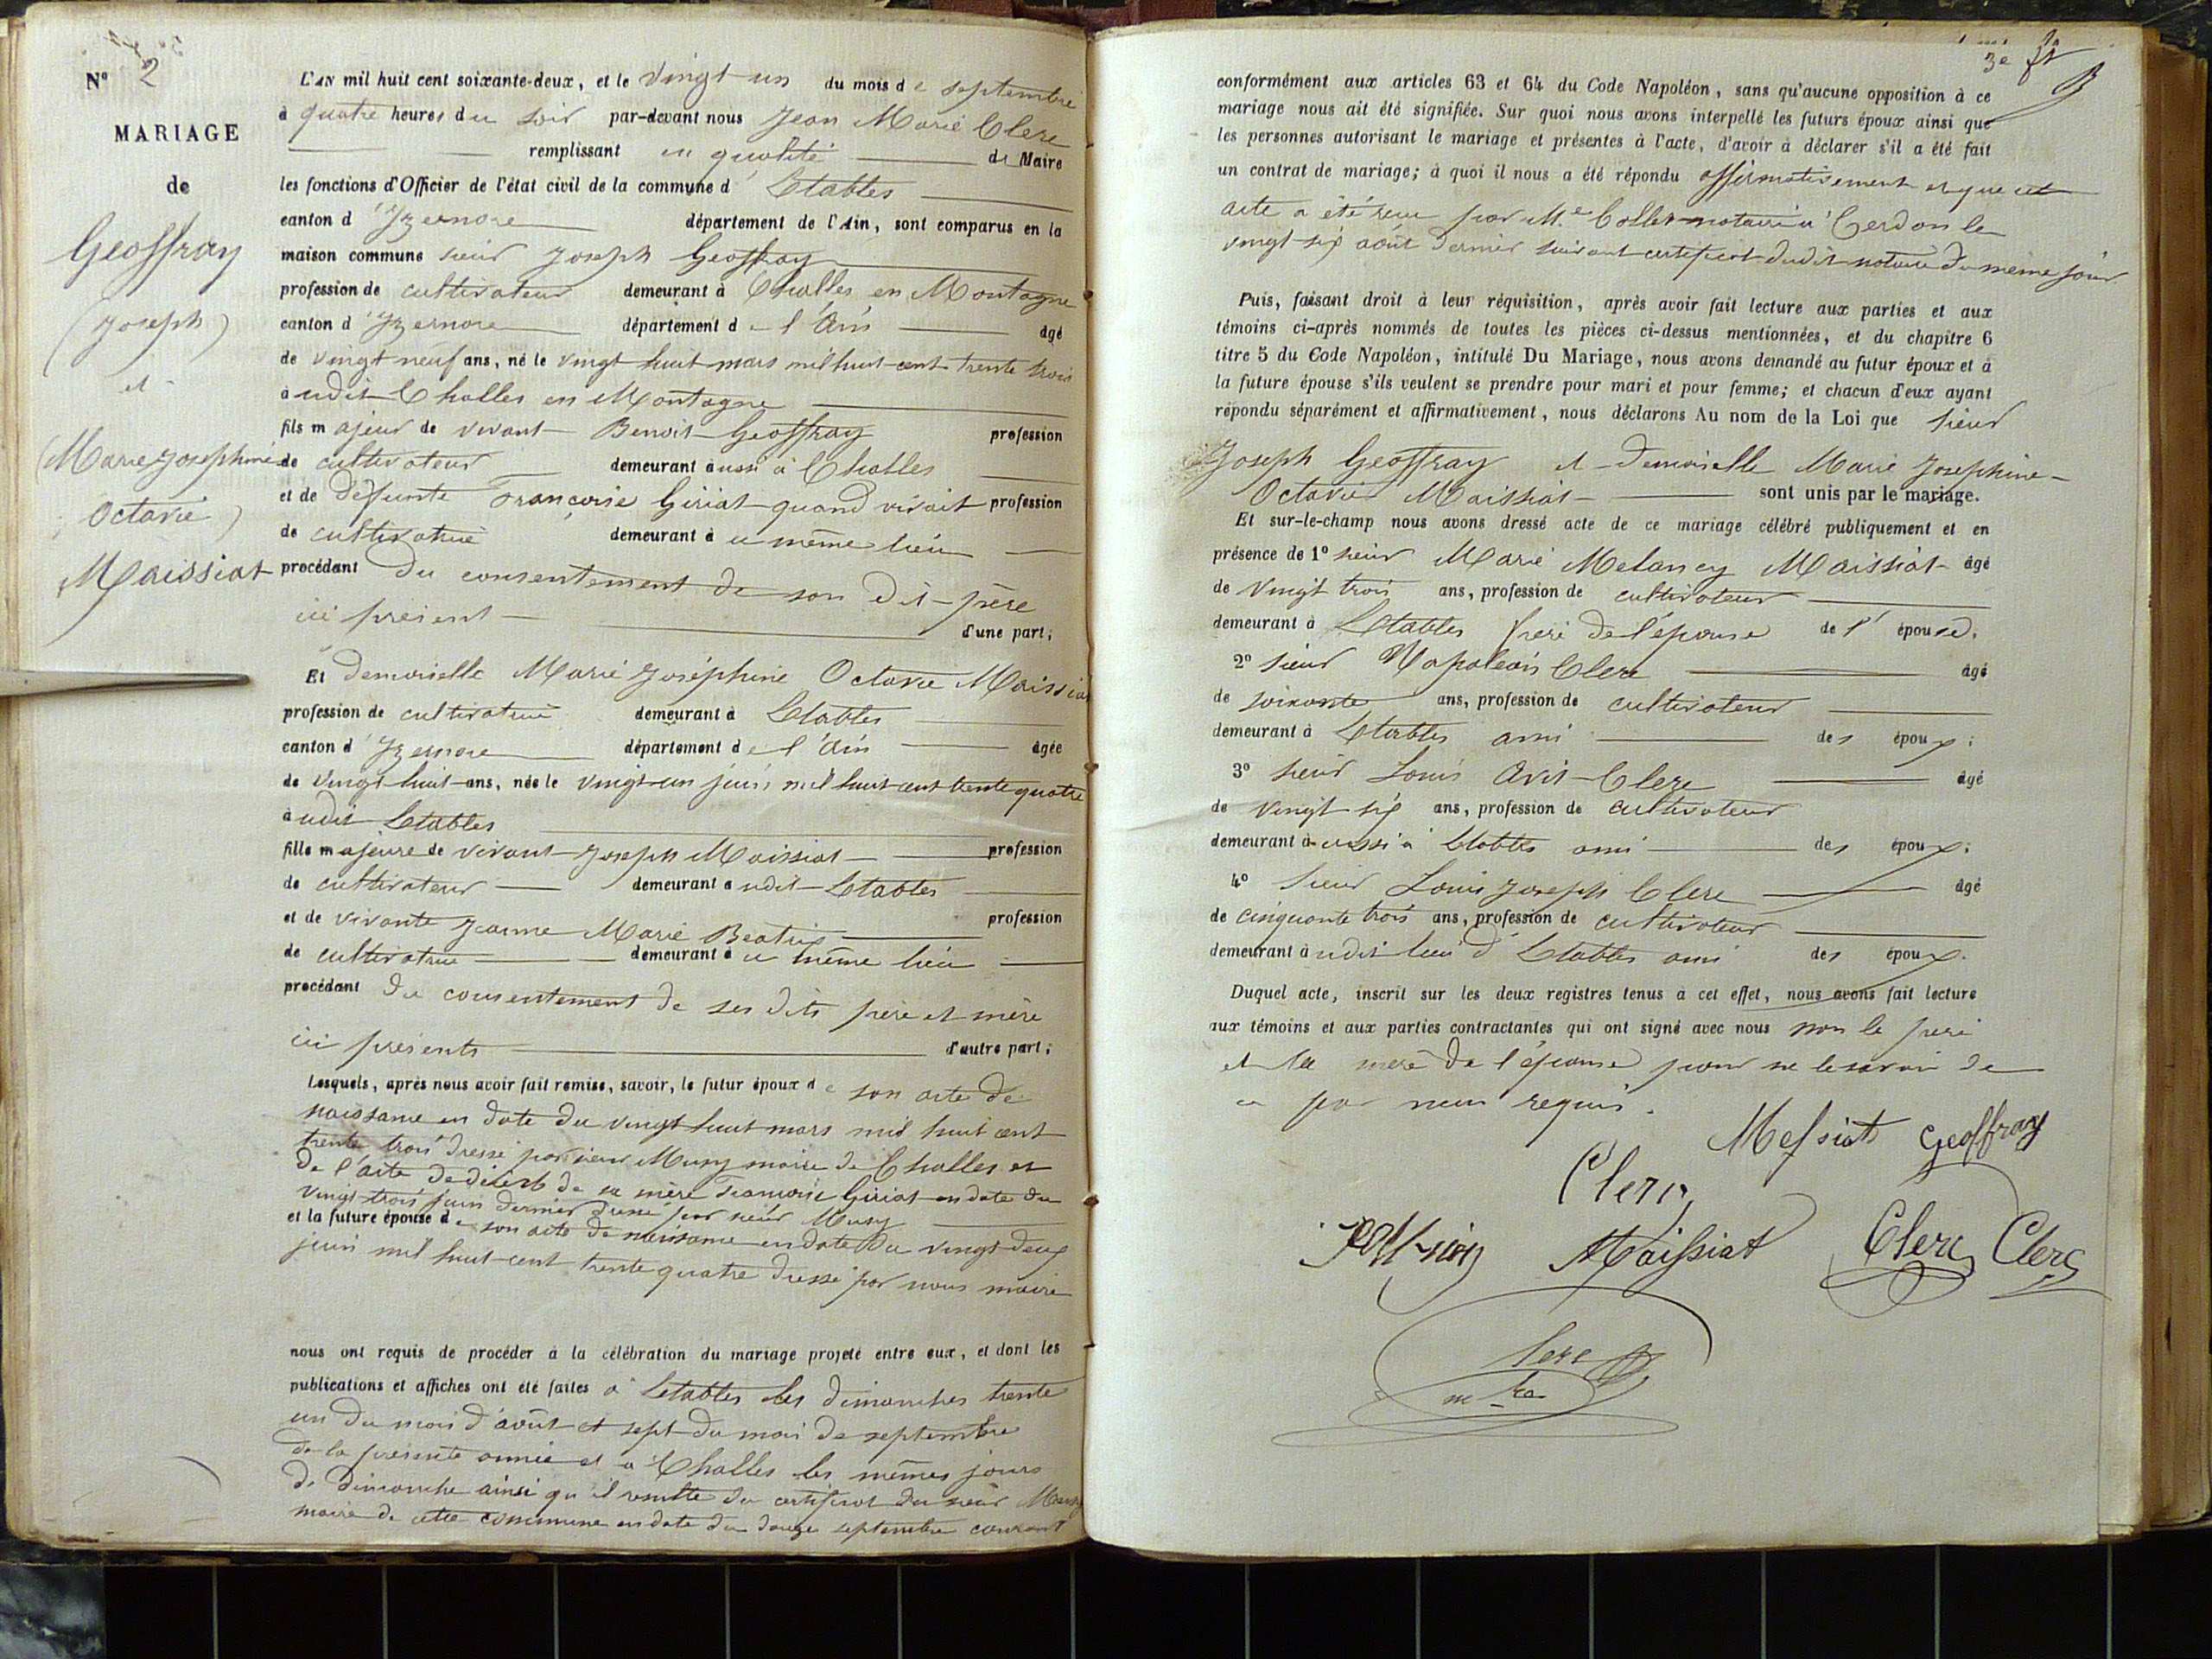 N° 2
MARIAGE
de
Geoffray
(Joseph)
et
(Marie Josephine
Octavie)
Maissiat
L'AN mil huit cent soixante-deux, et le vingt-un du mois de septembre
à quatre heures du soir par-devant nous Jean Marie Clerc
remplissant en qualité de Maire
les fonctions d'Officier de l'état civil de la commune d' Etables
canton d' Izernore département de l'Ain, sont comparus en la
maison commune sieur Joseph Geoffray
profession de cultivateur demeurant à Challes en Montagne
canton d' Izernore département de l'Ain âgé
de vingt neuf ans, né le vingt huit mars mil huit cent trente trois
audit Challes en Montagne
fils majeur de vivant Benoit Geoffray profession
de cultivateur demeurant aussi à Challes
et de défunte Françoise Giriat quand vivait profession
de cultivatrice demeurant à ce même lieu
procédant du consentement de son dit père
ici présent d'une part;
Et demoiselle Marie Joséphine Octavie Maissiat
profession de cultivatrice demeurant à Etables
canton d' Izernore département de l'Ain âgée
de vingt huit ans, née le vingt-un juin mil huit cent trente quatre
audit Etables
fille majeure de vivant Joseph Maissiat profession
de cultivateur demeurant audit Etables
et de vivante Jeanne Marie Beatrix profession
de cultivatrice demeurant à ce même lieu
procédant du consentement de ses dits père et mère
ici présents d'autre part;
Lesquels, après nous avoir fait remise, savoir, le futur époux de son acte de
naissance en date du vingt huit mars mil huit cent
trente trois dressé par sieur Musy maire de Challes et
de l'acte de décès de sa mère Françoise Giriat en date du
vingt-trois juin dernier dressé par sieur Musy
et la future épouse de son acte de naissance en date du vingt-deux
juin mil huit-cent trente quatre dressé par nous maire
nous ont requis de procéder à la célébration du mariage projeté entre eux, et dont les
publications et affiches ont été faites à Etables les dimanches trente
un du mois d'août et sept du mois de septembre
de la présente année et à Challes les mêmes jours
de dimanche ainsi qu'il résulte du certificat du sieur Musy
maire de cette commune en date du douze septembre courant
3e
conformément aux articles 63 et 64 du Code Napoléon, sans qu'aucune opposition à ce
mariage nous ait été signifiée. Sur quoi nous avons interpellé les futurs époux ainsi que
les personnes autorisant le mariage et présentes à l'acte, d'avoir à déclarer s'il a été fait
un contrat de mariage; à quoi il nous a été répondu affirmativement et que cet
acte a été reçu par Me Collet notaire à Cerdon le
vingt-six août dernier suivant certificat dudit notaire du même jour
Puis, faisant droit à leur réquisition, après avoir fait lecture aux parties et aux
témoins ci-après nommés de toutes les pièces ci-dessus mentionnées, et du chapitre 6
titre 5 du Code Napoléon, intitulé Du Mariage, nous avons demandé au futur époux et à
la future épouse s'ils veulent se prendre pour mari et pour femme; et chacun d'eux ayant
répondu séparément et affirmativement, nous déclarons Au nom de la Loi que sieur
Joseph Geoffray et demoiselle Marie Josephine
Octavie Maissiat sont unis par le mariage.
Et sur-le-champ nous avons dressé acte de ce mariage célébré publiquement et en
présence de 1° sieur Marie Melancy Maissiat âgé
de vingt trois ans, profession de cultivateur
demeurant à Etables frère de l'épouse de l' épouse.
2° sieur Napoléon Clerc âgé
de soixante ans, profession de cultivateur
demeurant à Etables ami des époux;
3° sieur Louis Avit Clerc âgé
de vingt six ans, profession de cultivateur
demeurant aussi à Etables ami des époux;
4° sieur Louis Joseph Clerc âgé
de cinquante trois ans, profession de cultivateur
demeurant audit lieu d'Etables ami des époux.
Duquel acte, inscrit sur les deux registres tenus à cet effet, nous avons fait lecture
aux témoins et aux parties contractantes qui ont signé avec nous non le père
et la mère de l'épouse pour ne le savoir de
ce par nous requis.
Messiat Geoffray
Clerc
Maissiat Clerc Clerc
Clerc
mre